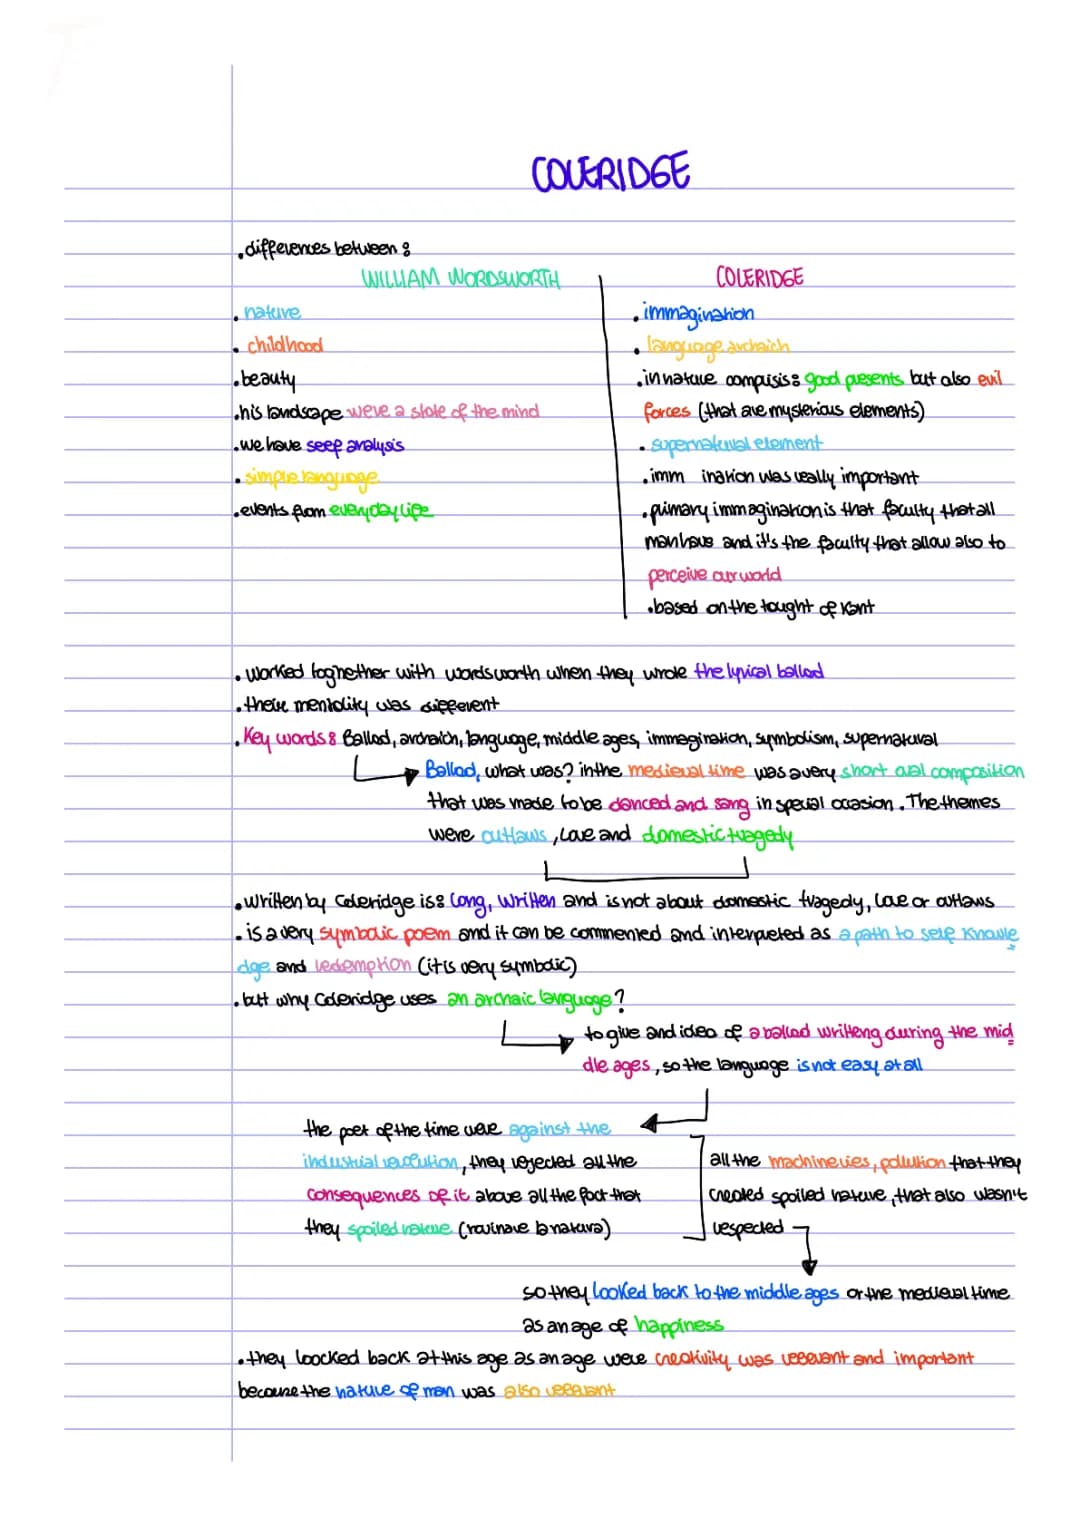 COLERIDGE
.differences between:
WILLIAM WORDSWORTH
. nature
. childhood
.beauty
.his landscape were a state of the mind
.we have seef analysis
. simple language
.events from everyday life
COLERIDGE
. immagination
. language archaich
.in nature comprisis: good presents but also evil
forces (that are mysterious elements)
. supernatural element
. imm ination was really important
.primary immagination is that faculty that all
man have and it's the faculty that allow also to
perceive our world
.based on the tought of Kant
. worked toghether with wordsworth when they wrote the lyrical ballad
.their mentality was different
. Key words: Ballad, archaich, language, middle ages, immagination, symbolism, supernatural
Ballad, what was? in the medieval time was a very short oral composition
that was made to be danced and sang in special occasion. The themes
were outlaws, love and domestic tragedy
.written by Coleridge is: long, written and is not about domestic tragedy, love or outlaws
. is a very symbolic poem and it can be commented and interpreted as a path to self Knowle
dge and redemption (it is very symbolic)
.but why Coleridge uses an archaic language?
to give and idea of a ballad writteng during the mid
dle ages, so the language is not easy at all
the poet of the time were against the
industrial revolution, they rejected all the
consequences of it above all the fact that
they spoiled nature (rovinare la natura)
all the machineries, pollution that they
created spoiled nature, that also wasn't
respected
so they looked back to the middle ages or the medieval time
as an age of happiness
.they loocked back at this age as an age were creativity was relevant and important
because the nature of man was also relevant